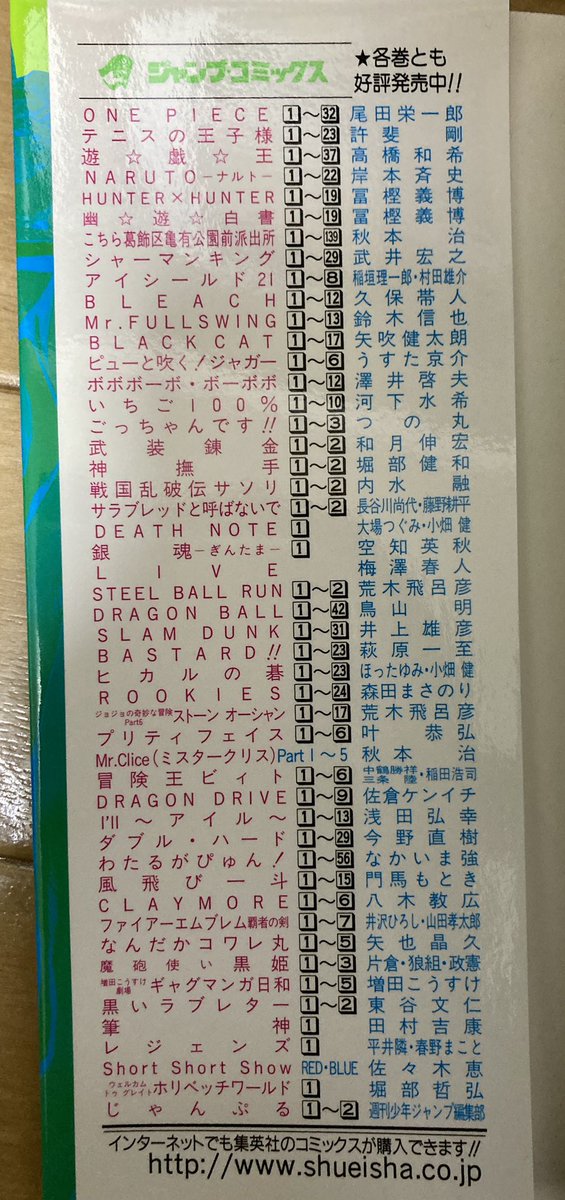 ジャンプ・コミックス
★各巻とも
好評発売中!!
ONE PIECE 1〜32 尾田栄一郎
テニスの王子様 1〜23 許斐 剛
遊☆戯☆王 1〜37 高橋和希
NARUTO—ナルト— 1〜22 岸本斉史
HUNTER×HUNTER 1〜19 冨樫義博
幽☆遊☆白書 1〜19 冨樫義博
こちら葛飾区亀有公園前派出所 1〜139 秋本 治
シャーマンキング 1〜29 武井宏之
アイシールド21 1〜8 稲垣理一郎・村田雄介
BLEACH 1〜12 久保帯人
Mr.FULLSWING 1〜13 鈴木信也
BLACK CAT 1〜17 矢吹健太朗
ピューと吹く!ジャガー 1〜6 うすた京介
ボボボーボ・ボーボボ 1〜12 澤井啓夫
いちご100% 1〜10 河下水希
ごっちゃんです!! 1〜3 つの丸
武装錬金 1〜2 和月伸宏
神撫手 1〜2 堀部健和
戦国乱破伝サソリ 1〜2 内水 融
サラブレッドと呼ばないで 1〜2 長谷川尚代・藤野耕平
DEATH NOTE 1 大場つぐみ・小畑 健
銀魂—ぎんたま— 1 空知英秋
LIVE 梅澤春人
STEEL BALL RUN 1〜2 荒木飛呂彦
DRAGON BALL 1〜42 鳥山 明
SLAM DUNK 1〜31 井上雄彦
BASTARD!! 1〜23 萩原一至
ヒカルの碁 1〜23 ほったゆみ・小畑 健
ROOKIES 1〜24 森田まさのり
ジョジョの奇妙な冒険 Part6 ストーン オーシャン 1〜17 荒木飛呂彦
プリティフェイス 1〜6 叶 恭弘
Mr.Clice(ミスタークリス) Part 1〜5 秋本 治
冒険王ビィト 1〜6 三条 陸・稲田浩司
DRAGON DRIVE 1〜9 佐倉ケンイチ
I'll〜アイル〜 1〜13 浅田弘幸
ダブル・ハード 1〜29 今野直樹
わたるがぴゅん! 1〜56 なかいま強
風飛び一斗 1〜15 門馬もとき
CLAYMORE 1〜6 八木教広
ファイアーエムブレム覇者の剣 1〜7 井沢ひろし・山田孝太郎
なんだかコワレ丸 1〜5 矢也晶久
魔砲使い黒姫 1〜3 片倉・狼組・政憲
増田こうすけ劇場 ギャグマンガ日和 1〜5 増田こうすけ
黒いラブレター 1〜2 東谷文仁
筆神 1 田村吉康
レジェンズ 1 平井隣・春野まこと
Short Short Show RED・BLUE 佐々木恵
ウェルカム トゥ グレイト ホリベッチワールド 1 堀部哲弘
じゃんぷる 1〜2 週刊少年ジャンプ編集部
インターネットでも集英社のコミックスが購入できます!!
http://www.shueisha.co.jp